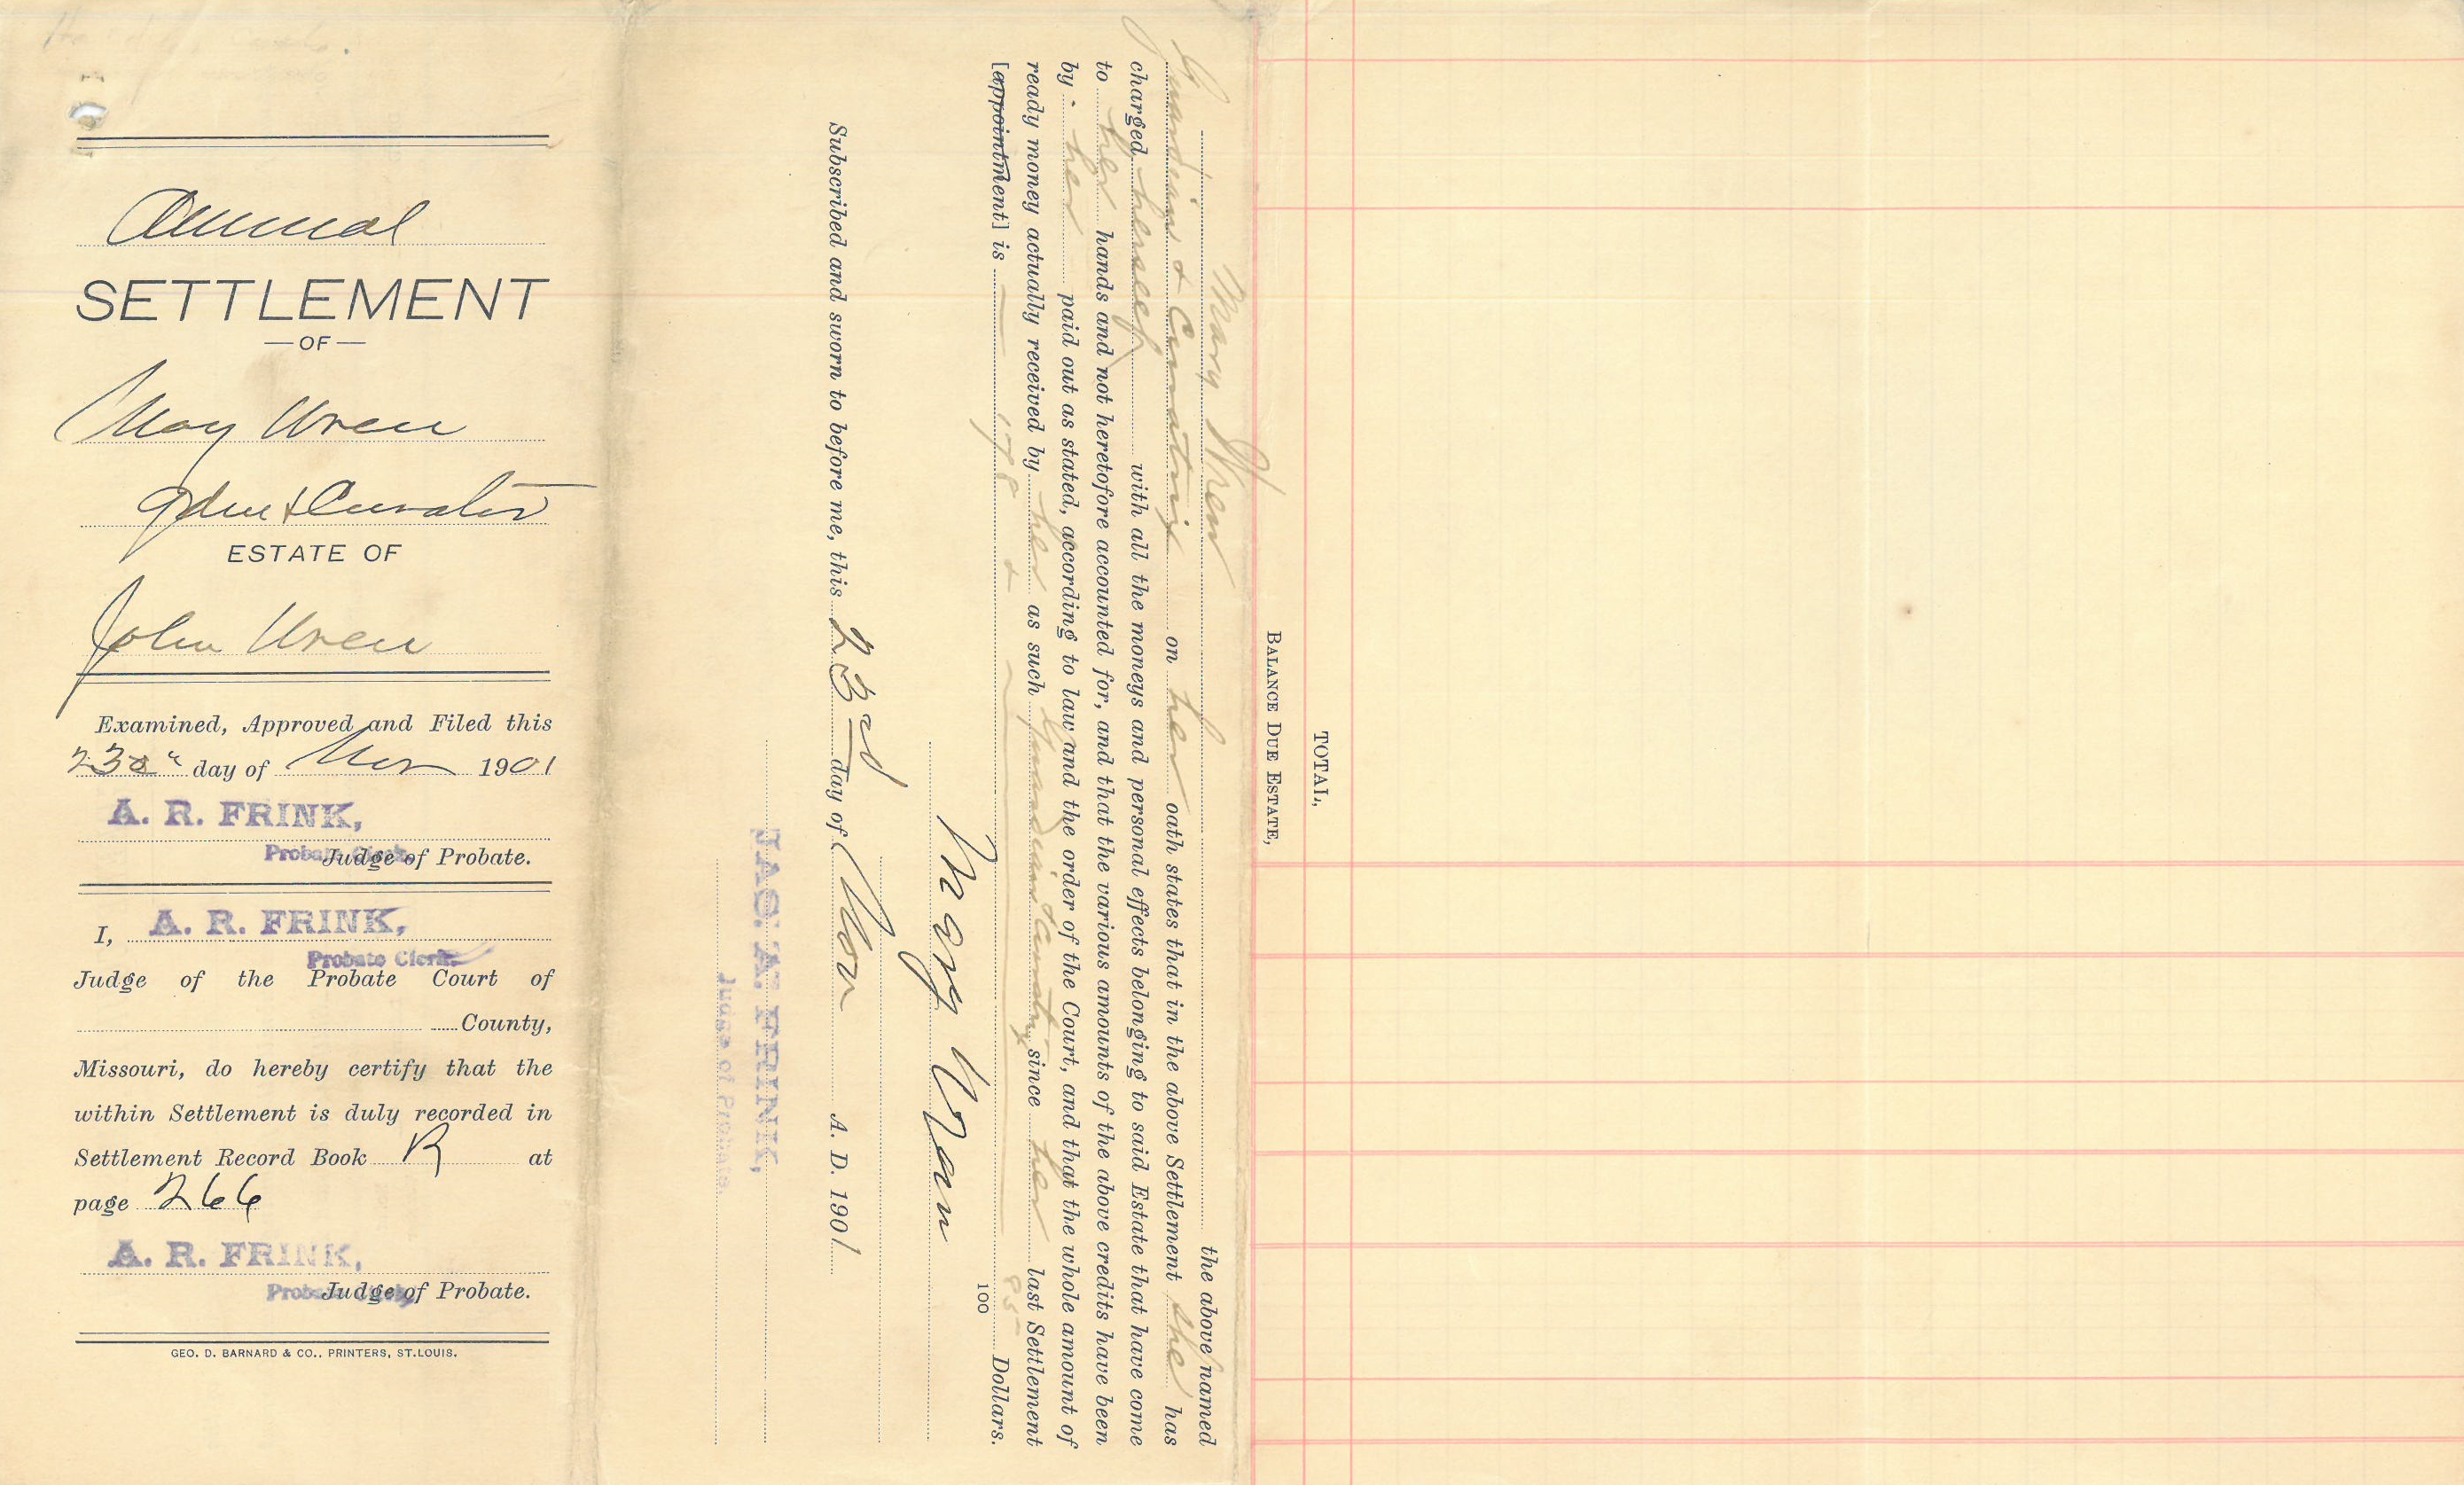 Annual
SETTLEMENT
—OF—
May Wren
Gdn & Curator
ESTATE OF
John Wren
Examined, Approved and Filed this
23d " day of Nov 1901
A. R. FRINK,
Probate Clerk.
Judge of Probate.
I, A. R. FRINK,
Probate Clerk.
Judge of the Probate Court of
County,
Missouri, do hereby certify that the
within Settlement is duly recorded in
Settlement Record Book R at
page 266
A. R. FRINK,
Judge of Probate.
GEO. D. BARNARD & CO., PRINTERS, ST. LOUIS.
BALANCE DUE ESTATE,
TOTAL,
Mary Wren the above named
Guardian & Curatrix on her oath states that in the above Settlement she has
charged herself with all the moneys and personal effects belonging to said Estate that have come
to her hands and not heretofore accounted for, and that the various amounts of the above credits have been
by her paid out as stated, according to law and the order of the Court, and that the whole amount of
ready money actually received by her as such Guardian & Curatrix since her last Settlement
[appointment] is — 178 & 100 Dollars.
Mary Wren
Subscribed and sworn to before me, this 23rd day of Nov A. D. 1901
JAS. A. FRINK,
Judge of Probate.